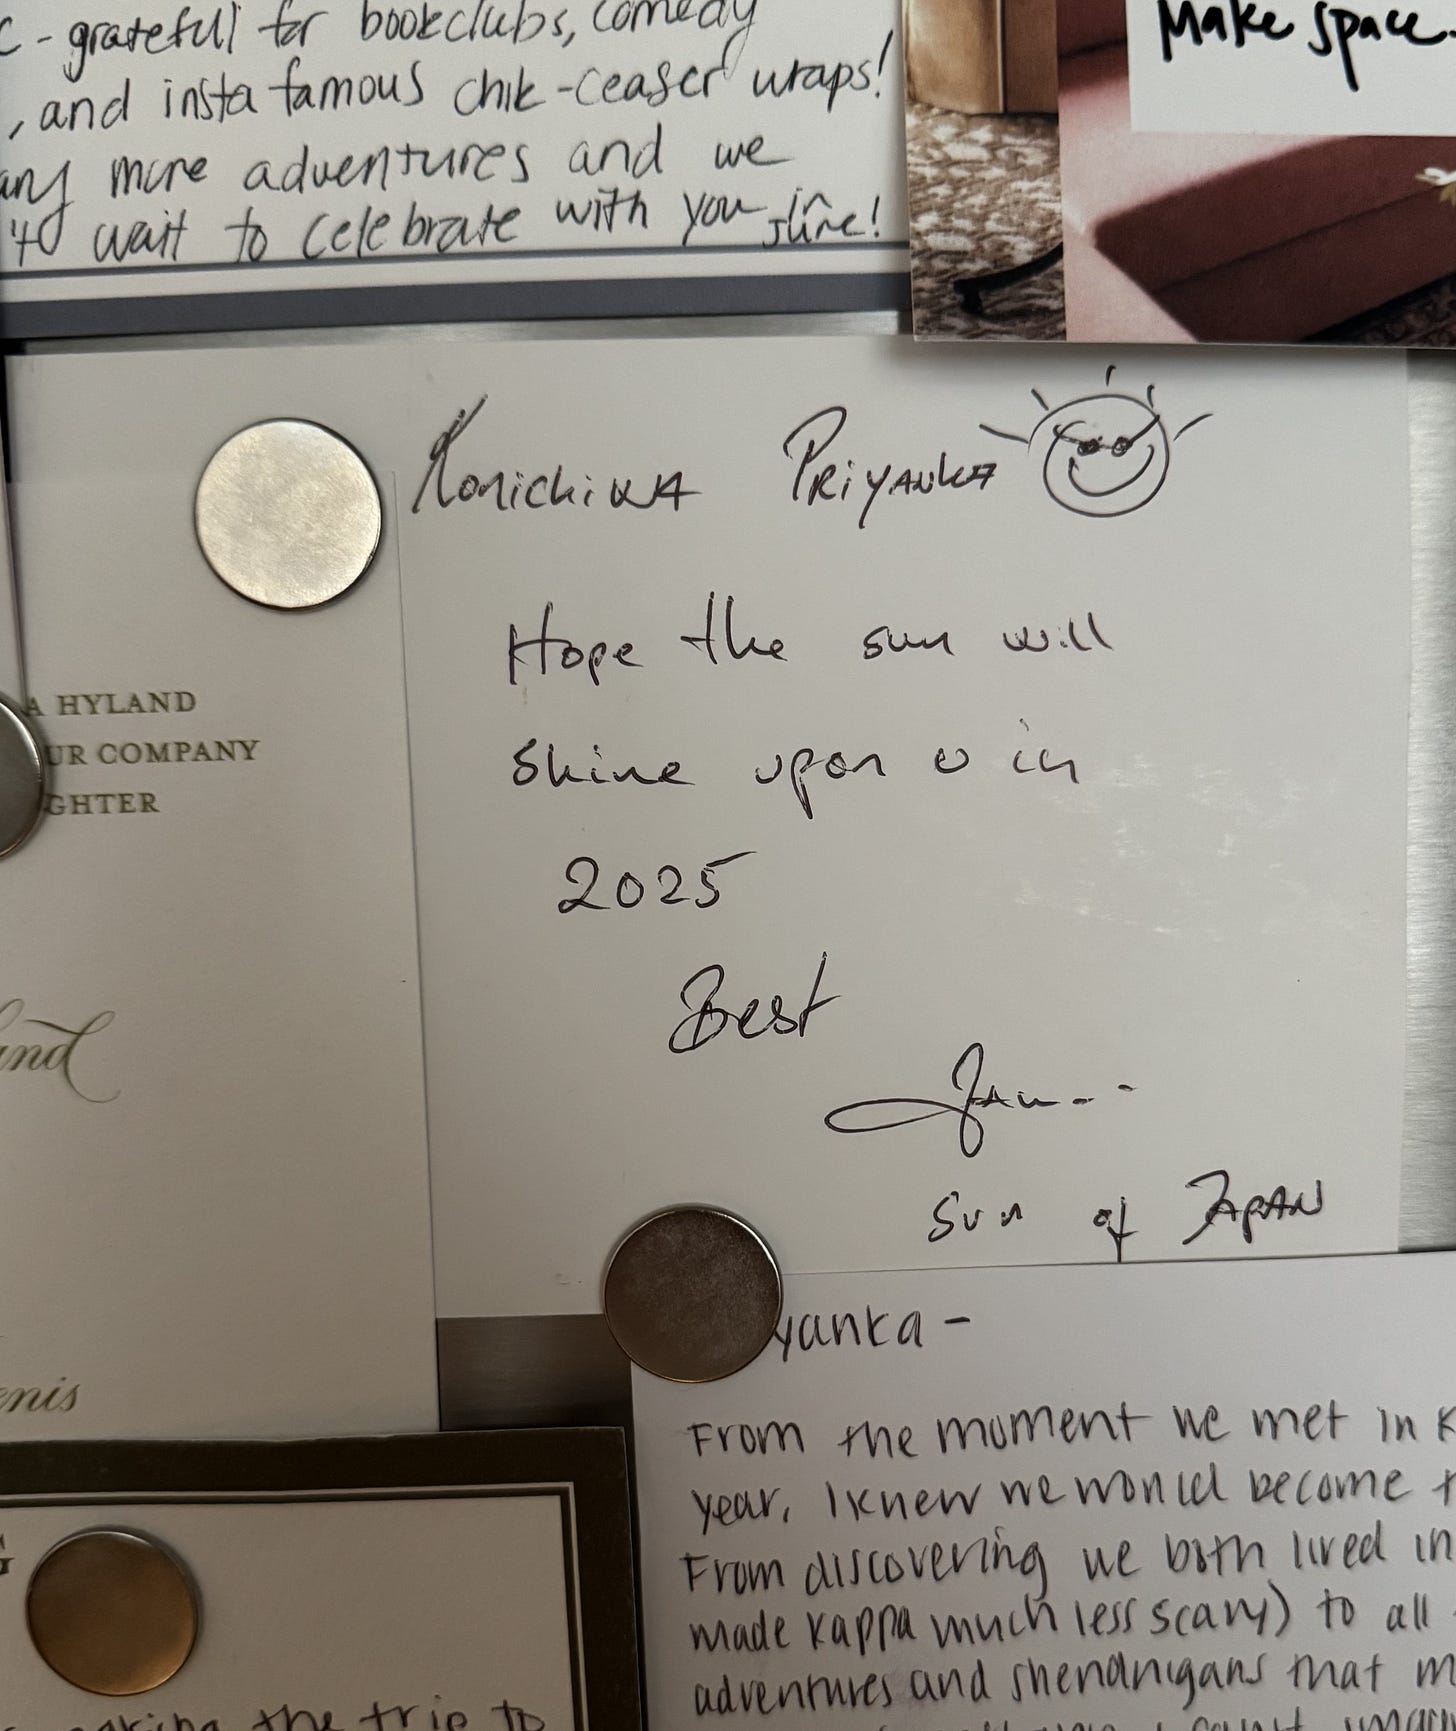 - grateful for bookclubs, comedy
, and insta famous chik-ceaser wraps!
more adventures and we
wait to celebrate with you in
June!
Make space.
Konichiwa Priyanka
Hope the sun will
shine upon u in
2025
Best
Jan
Sun of JAPAN
A HYLAND
UR COMPANY
GHTER
and
enis
G
making the trip to
yanka -
From the moment we met in K
year, I knew we would become t
From discovering we both lived in
made Kappa much less scary) to all
adventures and shenanigans that m